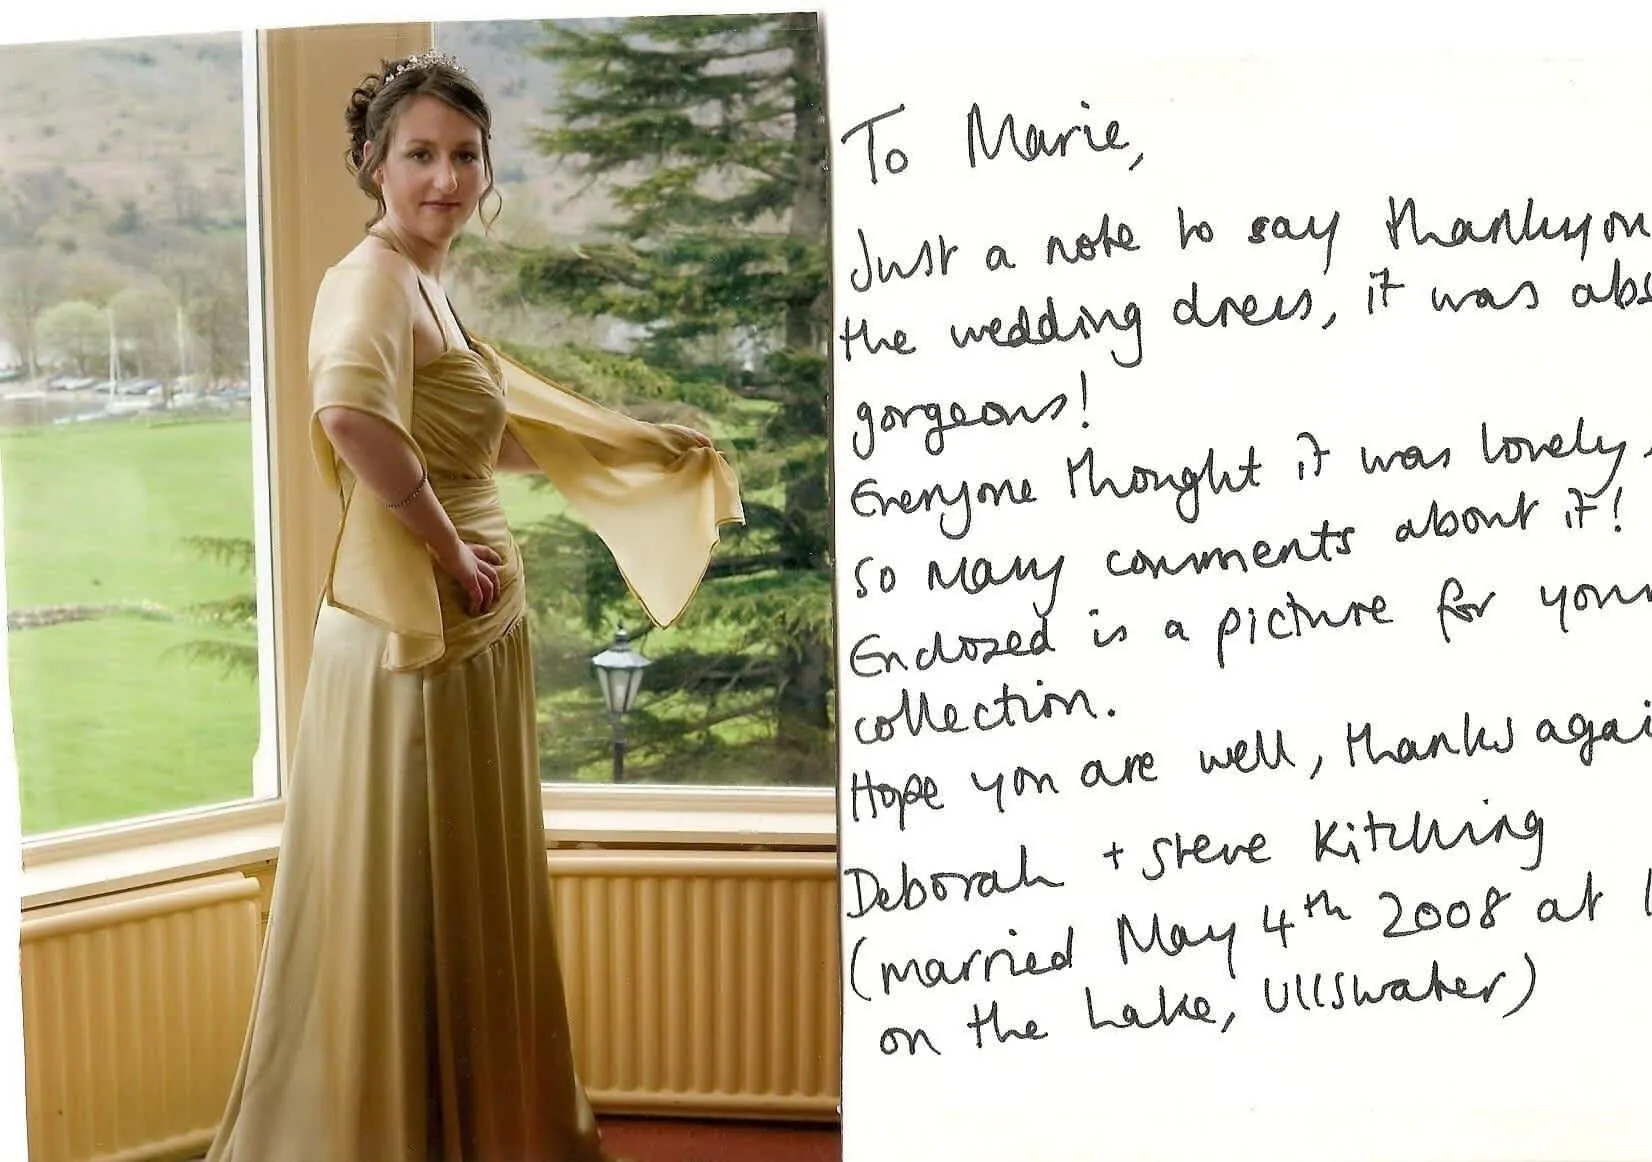 To Marie,
Just a note to say thankyou
the wedding dress, it was abs
gorgeous!
Everyone thought it was lovely,
so many comments about it!
Enclosed is a picture for your
collection.
Hope you are well, thanks agai
Deborah + Steve Kitching
(married May 4th 2008 at I
on the Lake, Ullswater)